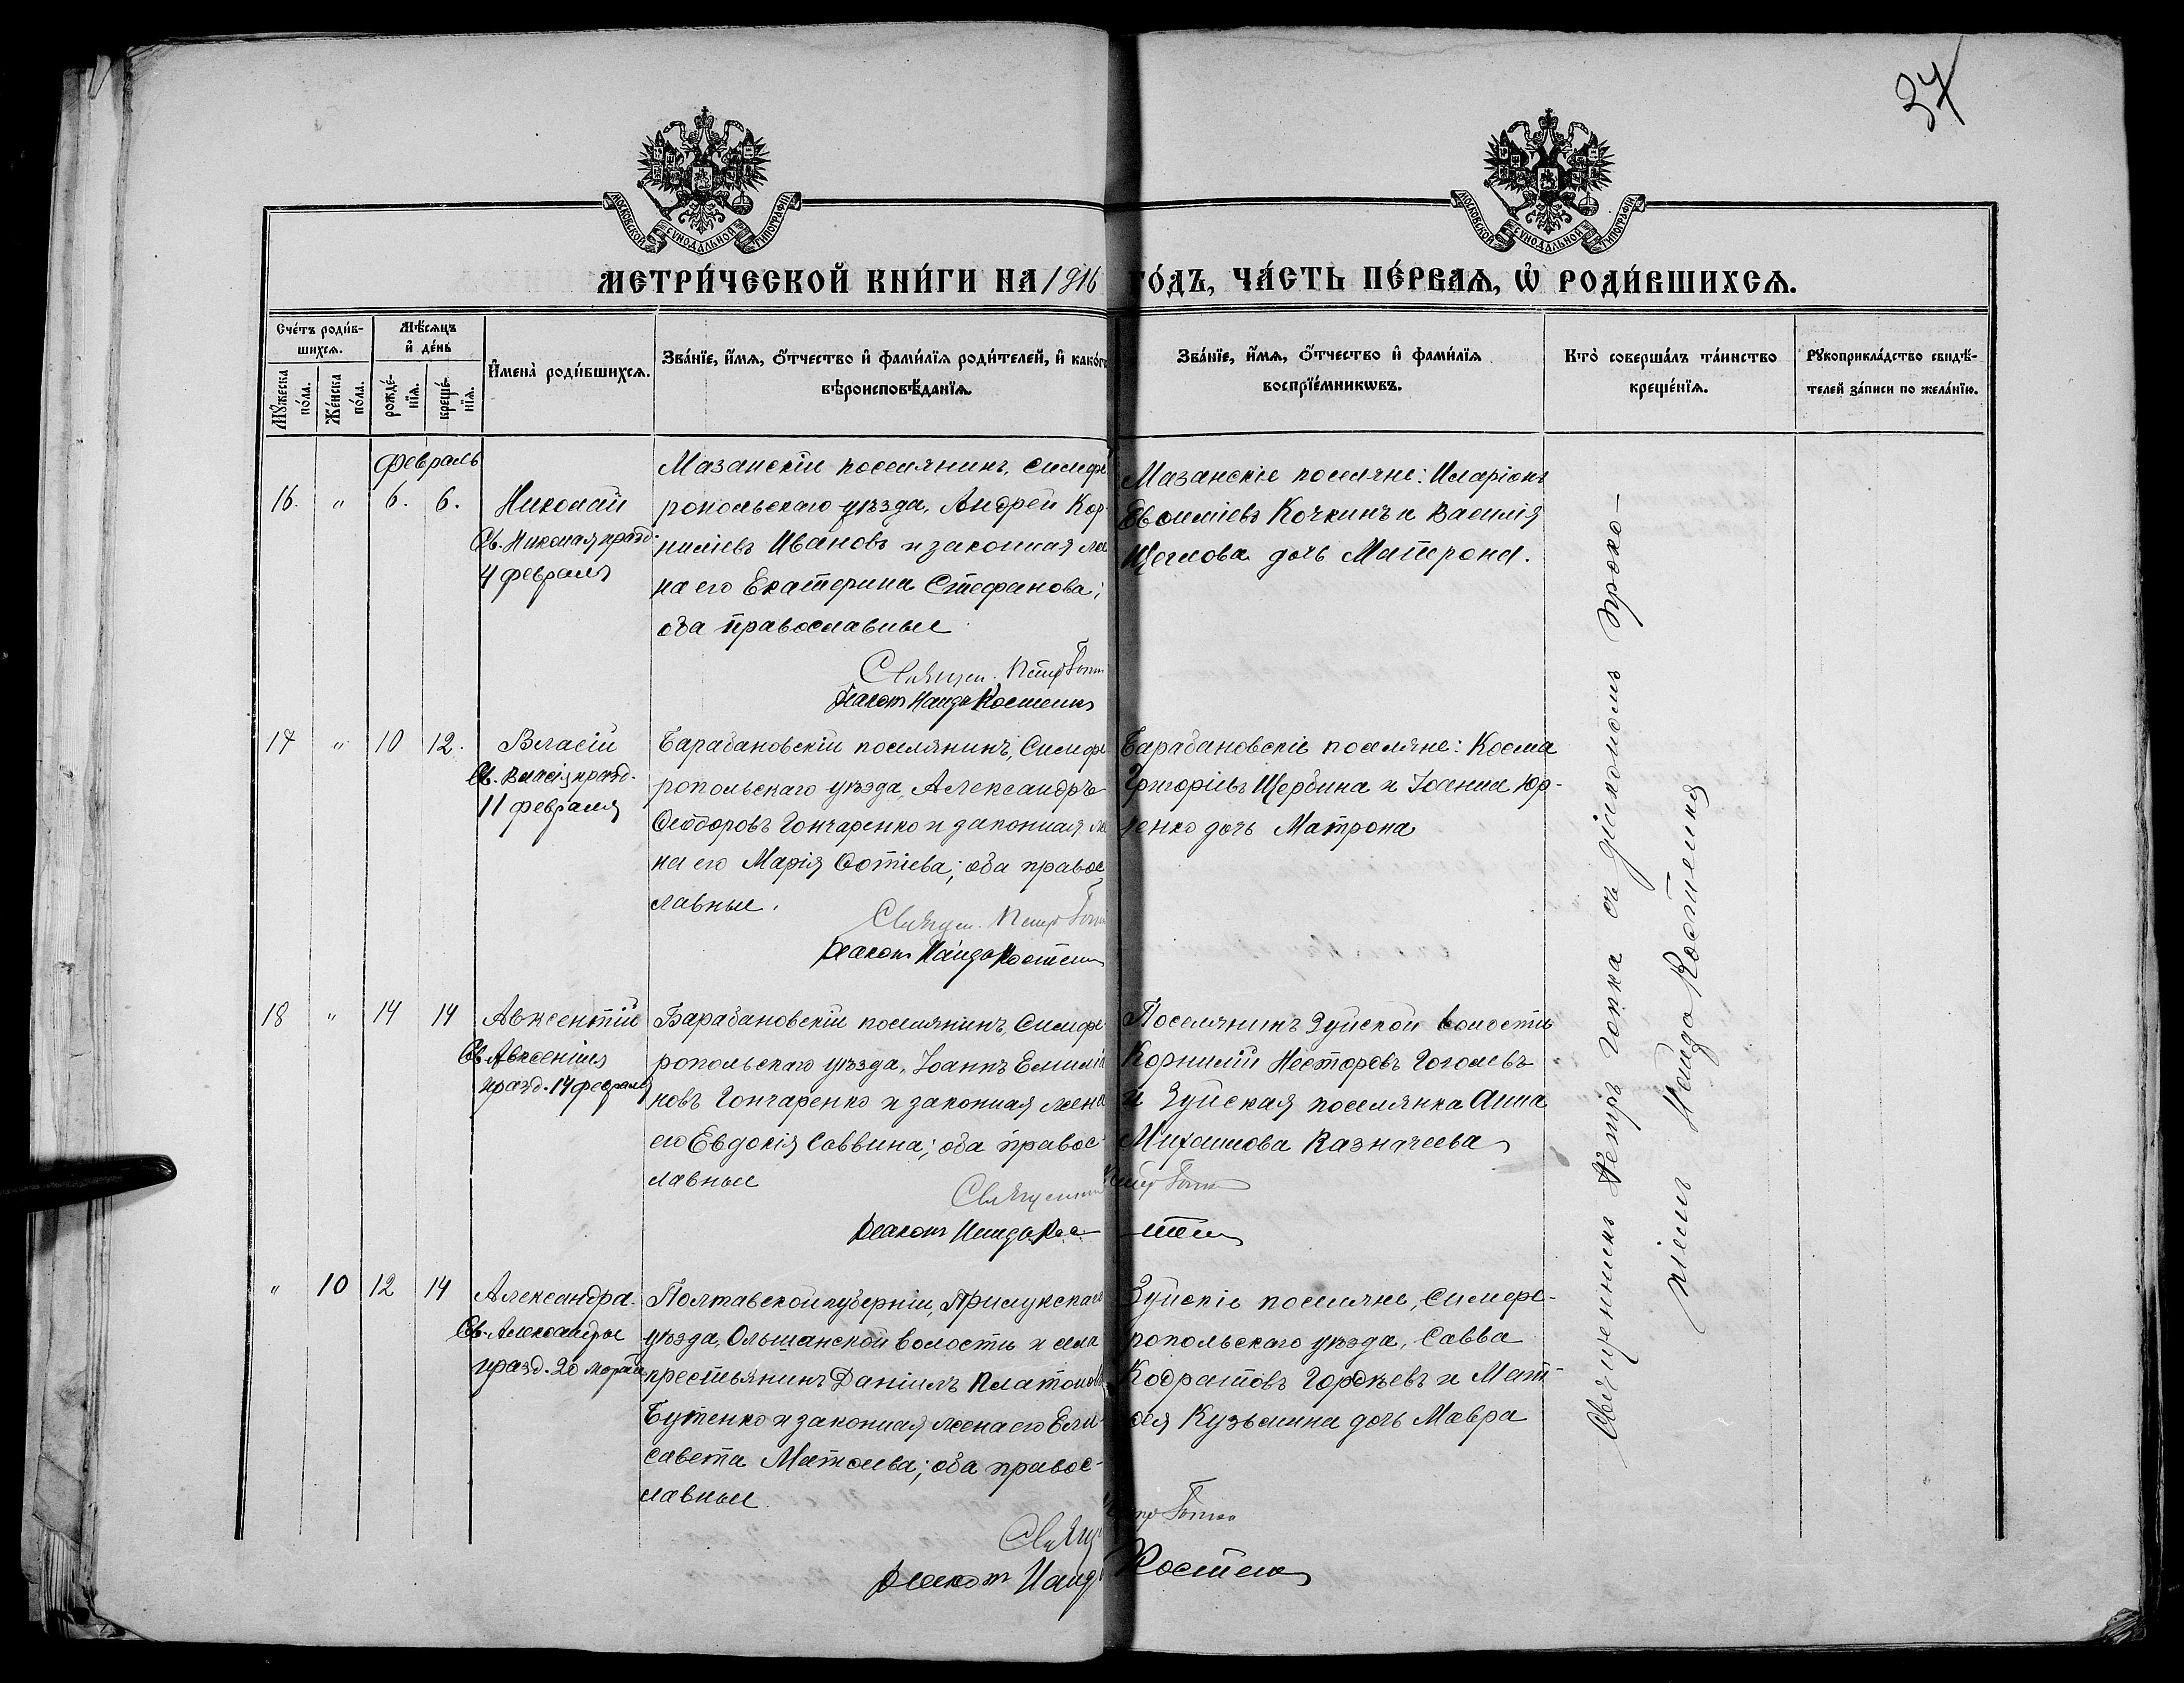 37
МОСКОВСКОЙ СѴНОДАЛЬНОЙ ТИПОГРАФІИ
МОСКОВСКОЙ СѴНОДАЛЬНОЙ ТИПОГРАФІИ
МЕТРИ́ЧЕСКОЙ КНИ́ГИ НА 1916 ГО́ДЪ, ЧА́СТЬ ПЕ́РВАѦ, Ѽ РОДИ́ВШИХСѦ.
Сче́тъ роди́в-
шихсѧ.
Мѣ́сѧцъ
и҆ де́нь
Мꙋ́жеска
по́ла.
Же́нска
по́ла.
рожде́-
нїѧ.
креще́-
нїѧ.
И҆мена̀ роди́вшихсѧ.
Зва́нїе, и҆́мѧ, ѻ҆́тчество и҆ фами́лїѧ роди́телей, и҆ како́гѡ
вѣроисповѣ́данїѧ.
Зва́нїе, и҆́мѧ, ѻ҆́тчество и҆ фами́лїѧ
воспрїе́мникѡвъ.
Кто̀ соверша́лъ та́инство
креще́нїѧ.
Рꙋкоприкла́дство свидѣ́-
телей за́писи по жела́нїю.
Февраль
16. " 6. 6. Николай
Св. Николая празд.
4 февраля
Мазанскій поселянинъ, Симфе
ропольскаго уѣзда, Андрей Кор-
ниліевъ Ивановъ и законная же
на его Екатерина Стефанова;
оба православные
Священ. Петръ
Діаконъ Костенко
Мазанскіе поселяне: Иларіонъ
Евѳиміевъ Кочкинъ и Василія
Щеглова дочь Матрона.
17 " 10 12. Власій
Св. Власія празд.
11 февраля
Барабановскій поселянинъ, Симфе
ропольскаго уѣзда, Александръ
Ѳеодоровъ Гончаренко и законная же
на его Марія Фотіева; оба правос
лавные.
Священ. Петръ
Діаконъ
Барабановскіе поселяне: Косма
Григоріевъ Щербина и Іоанна Юр-
ченко дочь Матрона
18 " 14 14 Авксентій
Св. Авксентія
празд. 14 февраля
Барабановскій поселянинъ, Симфе
ропольскаго уѣзда, Іоаннъ Емиліа
новъ Гончаренко и законная жена
его Евдокія Саввина; оба правос-
лавные
Священникъ Петръ
Діаконъ
Поселянинъ Зуйской волости
Корнилій Несторовъ Гоголевъ
и Зуйская поселянка Анна
Михаилова Казначеева
" 10 12 14 Александра
Св. Александры
празд. 20 марта
Полтавской губерніи, Прилукскаго
уѣзда, Ольшанской волости и села
крестьянинъ Даніилъ Платоновъ
Бутенко и законная жена его Ели-
савета Матѳеева; оба правос-
лавные.
Свящ Петръ
Діаконъ Костенко
Зуйскіе поселяне, Симфе-
ропольскаго уѣзда, Савва
Кодратовъ Гордѣевъ и Мат-
ѳея Кузьмина дочь Мавра
Священникъ Петръ съ діакономъ Проко-
піемъ Костенко